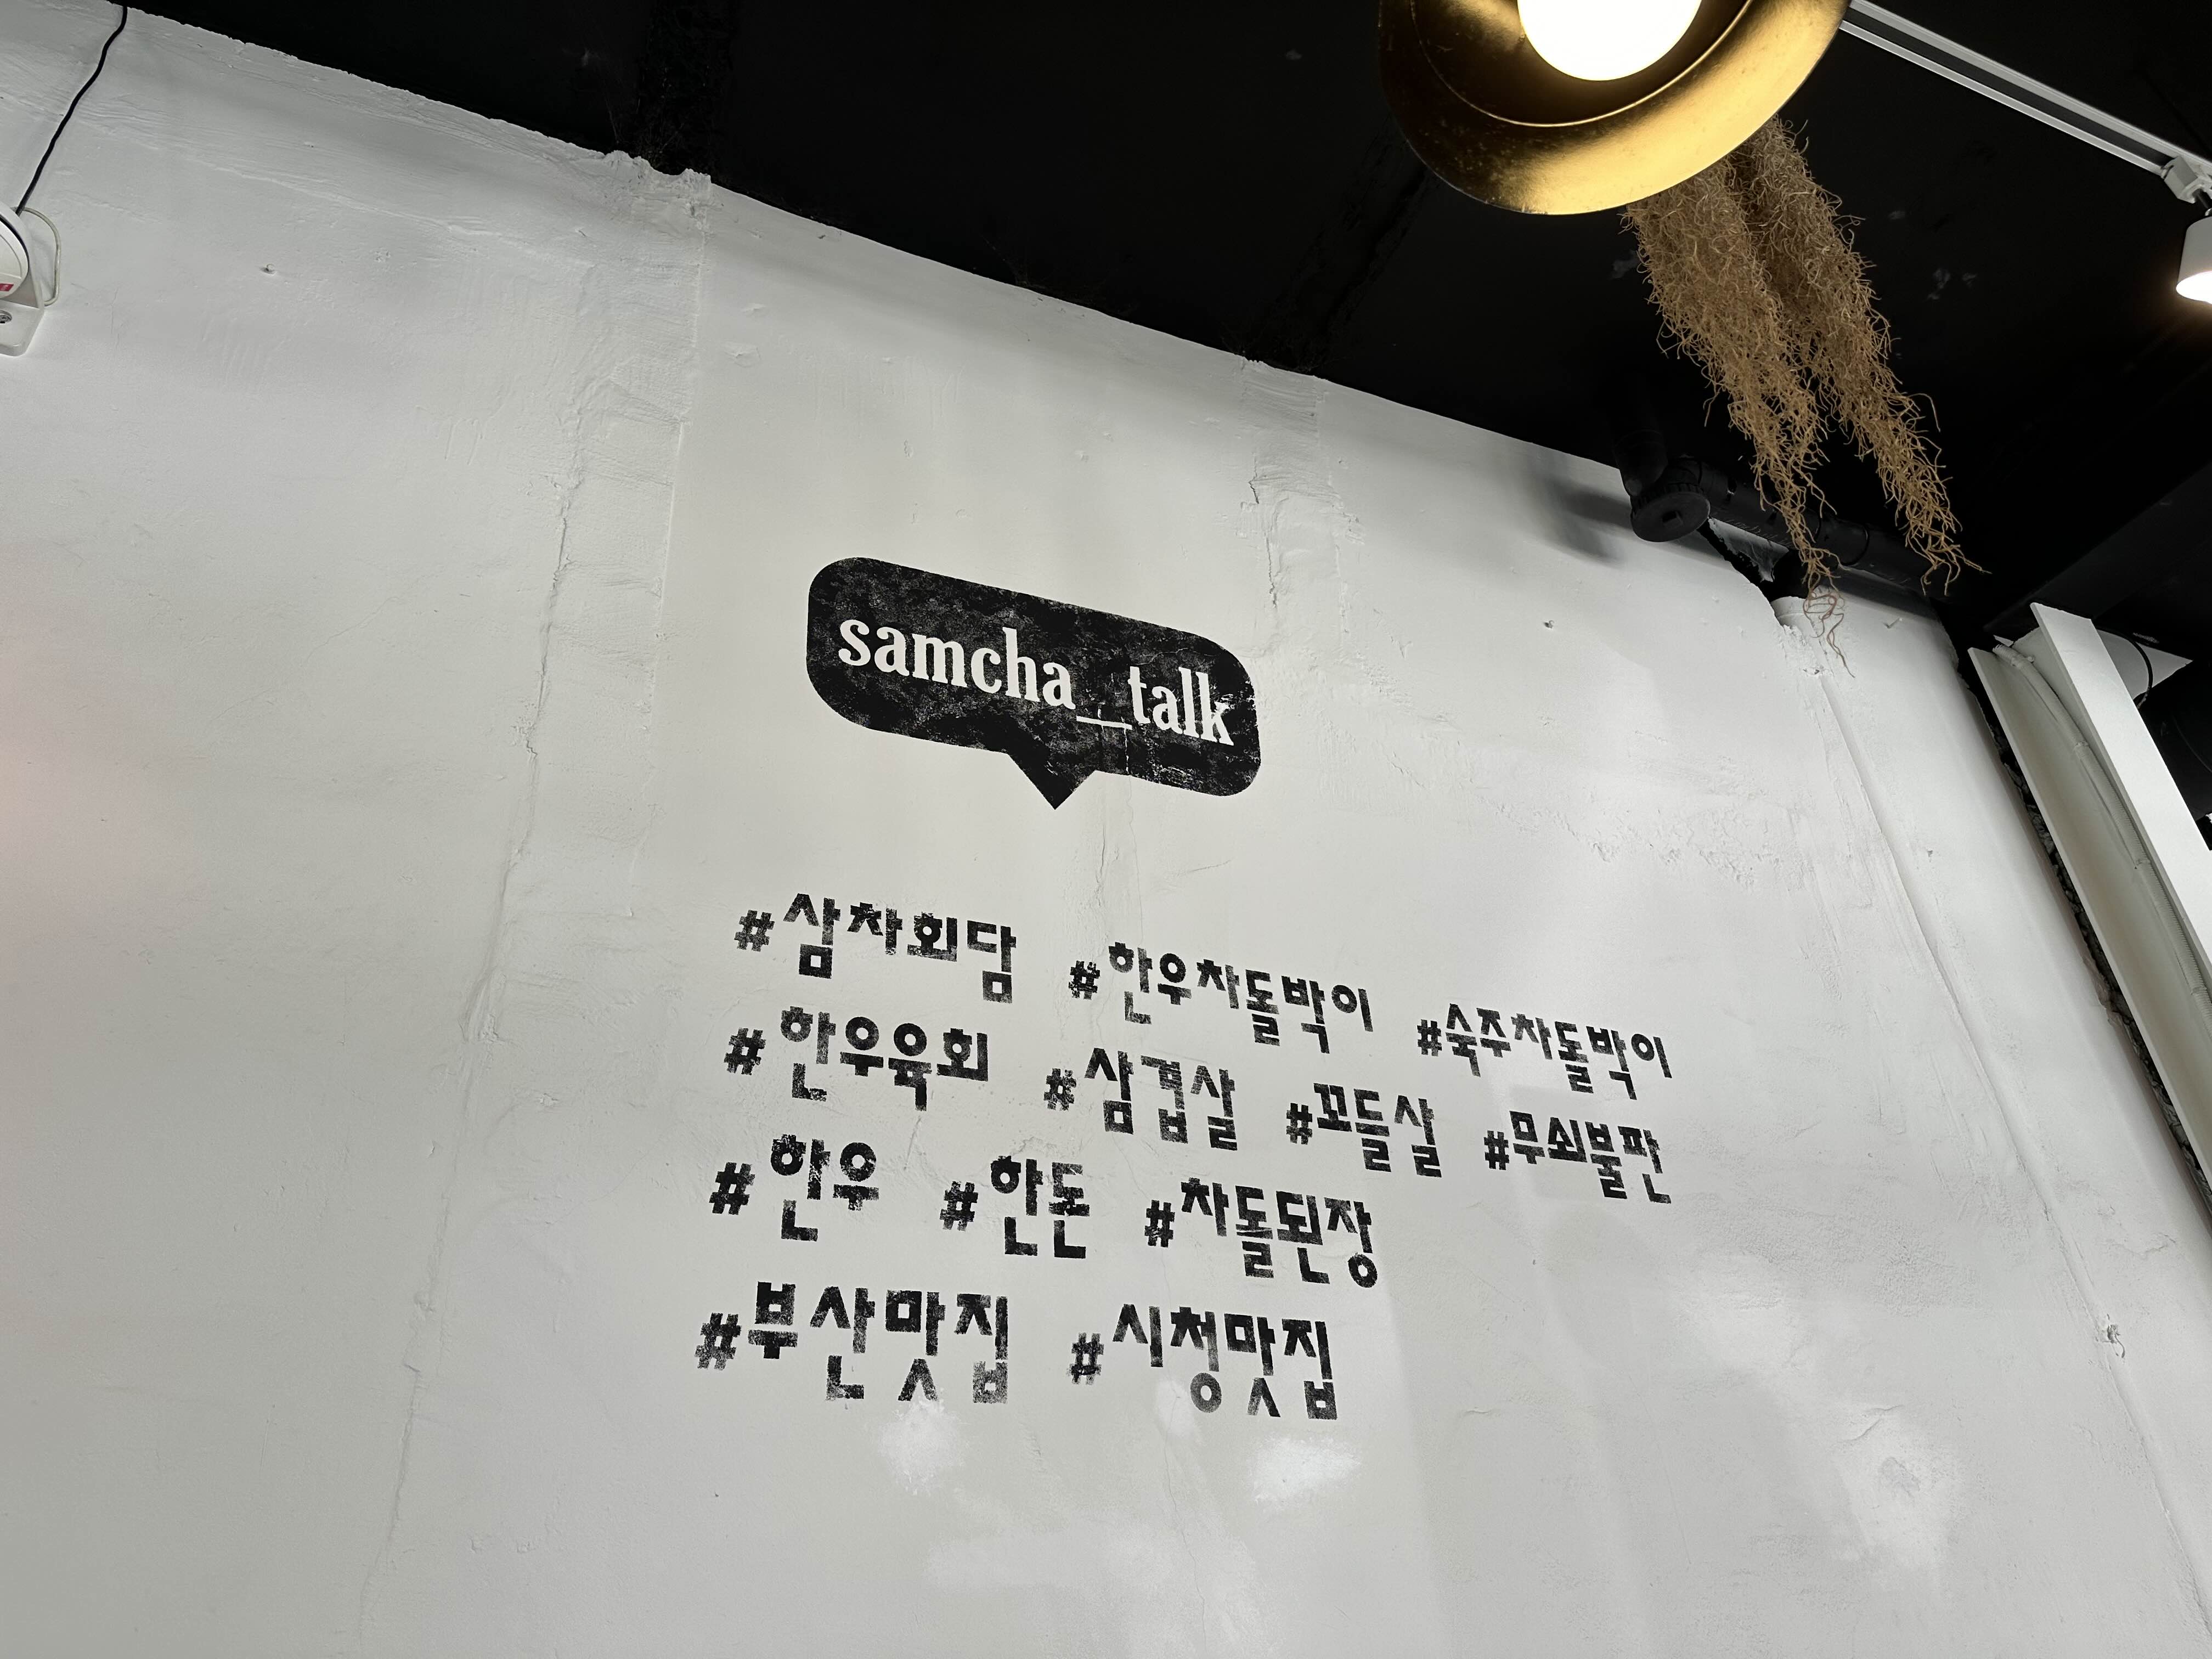 samcha__talk
#삼차회담 #한우차돌박이 #숙주차돌박이
#한우육회 #삼겹살 #꼬들살 #무쇠불판
#한우 #한돈 #차돌된장
#부산맛집 #시청맛집